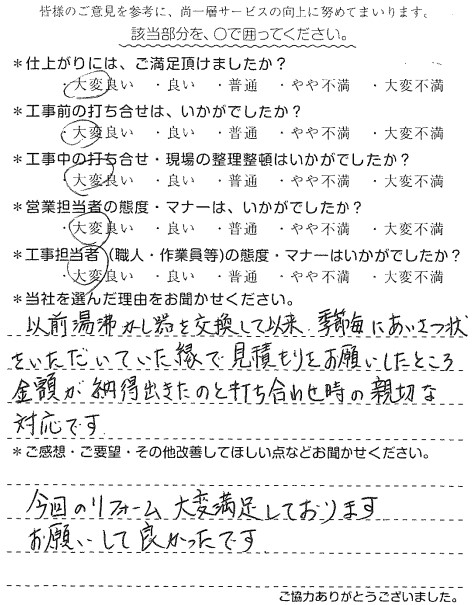 皆様のご意見を参考に、尚一層サービスの向上に努めてまいります。
該当部分を、○で囲ってください。
*仕上がりには、ご満足頂けましたか?
・大変良い ・良い ・普通 ・やや不満 ・大変不満
*工事前の打ち合せは、いかがでしたか?
・大変良い ・良い ・普通 ・やや不満 ・大変不満
*工事中の打ち合せ・現場の整理整頓はいかがでしたか?
・大変良い ・良い ・普通 ・やや不満 ・大変不満
*営業担当者の態度・マナーは、いかがでしたか?
・大変良い ・良い ・普通 ・やや不満 ・大変不満
*工事担当者(職人・作業員等)の態度・マナーはいかがでしたか?
・大変良い ・良い ・普通 ・やや不満 ・大変不満
*当社を選んだ理由をお聞かせください。
以前湯沸かし器を交換して以来、季節毎にあいさつ状
をいただいていた縁で見積もりをお願いしたところ
金額が納得出きたのと打ち合わせ時の親切な
対応です
*ご感想・ご要望・その他改善してほしい点などお聞かせください。
今回のリフォーム大変満足しております
お願いして良かったです
ご協力ありがとうございました。